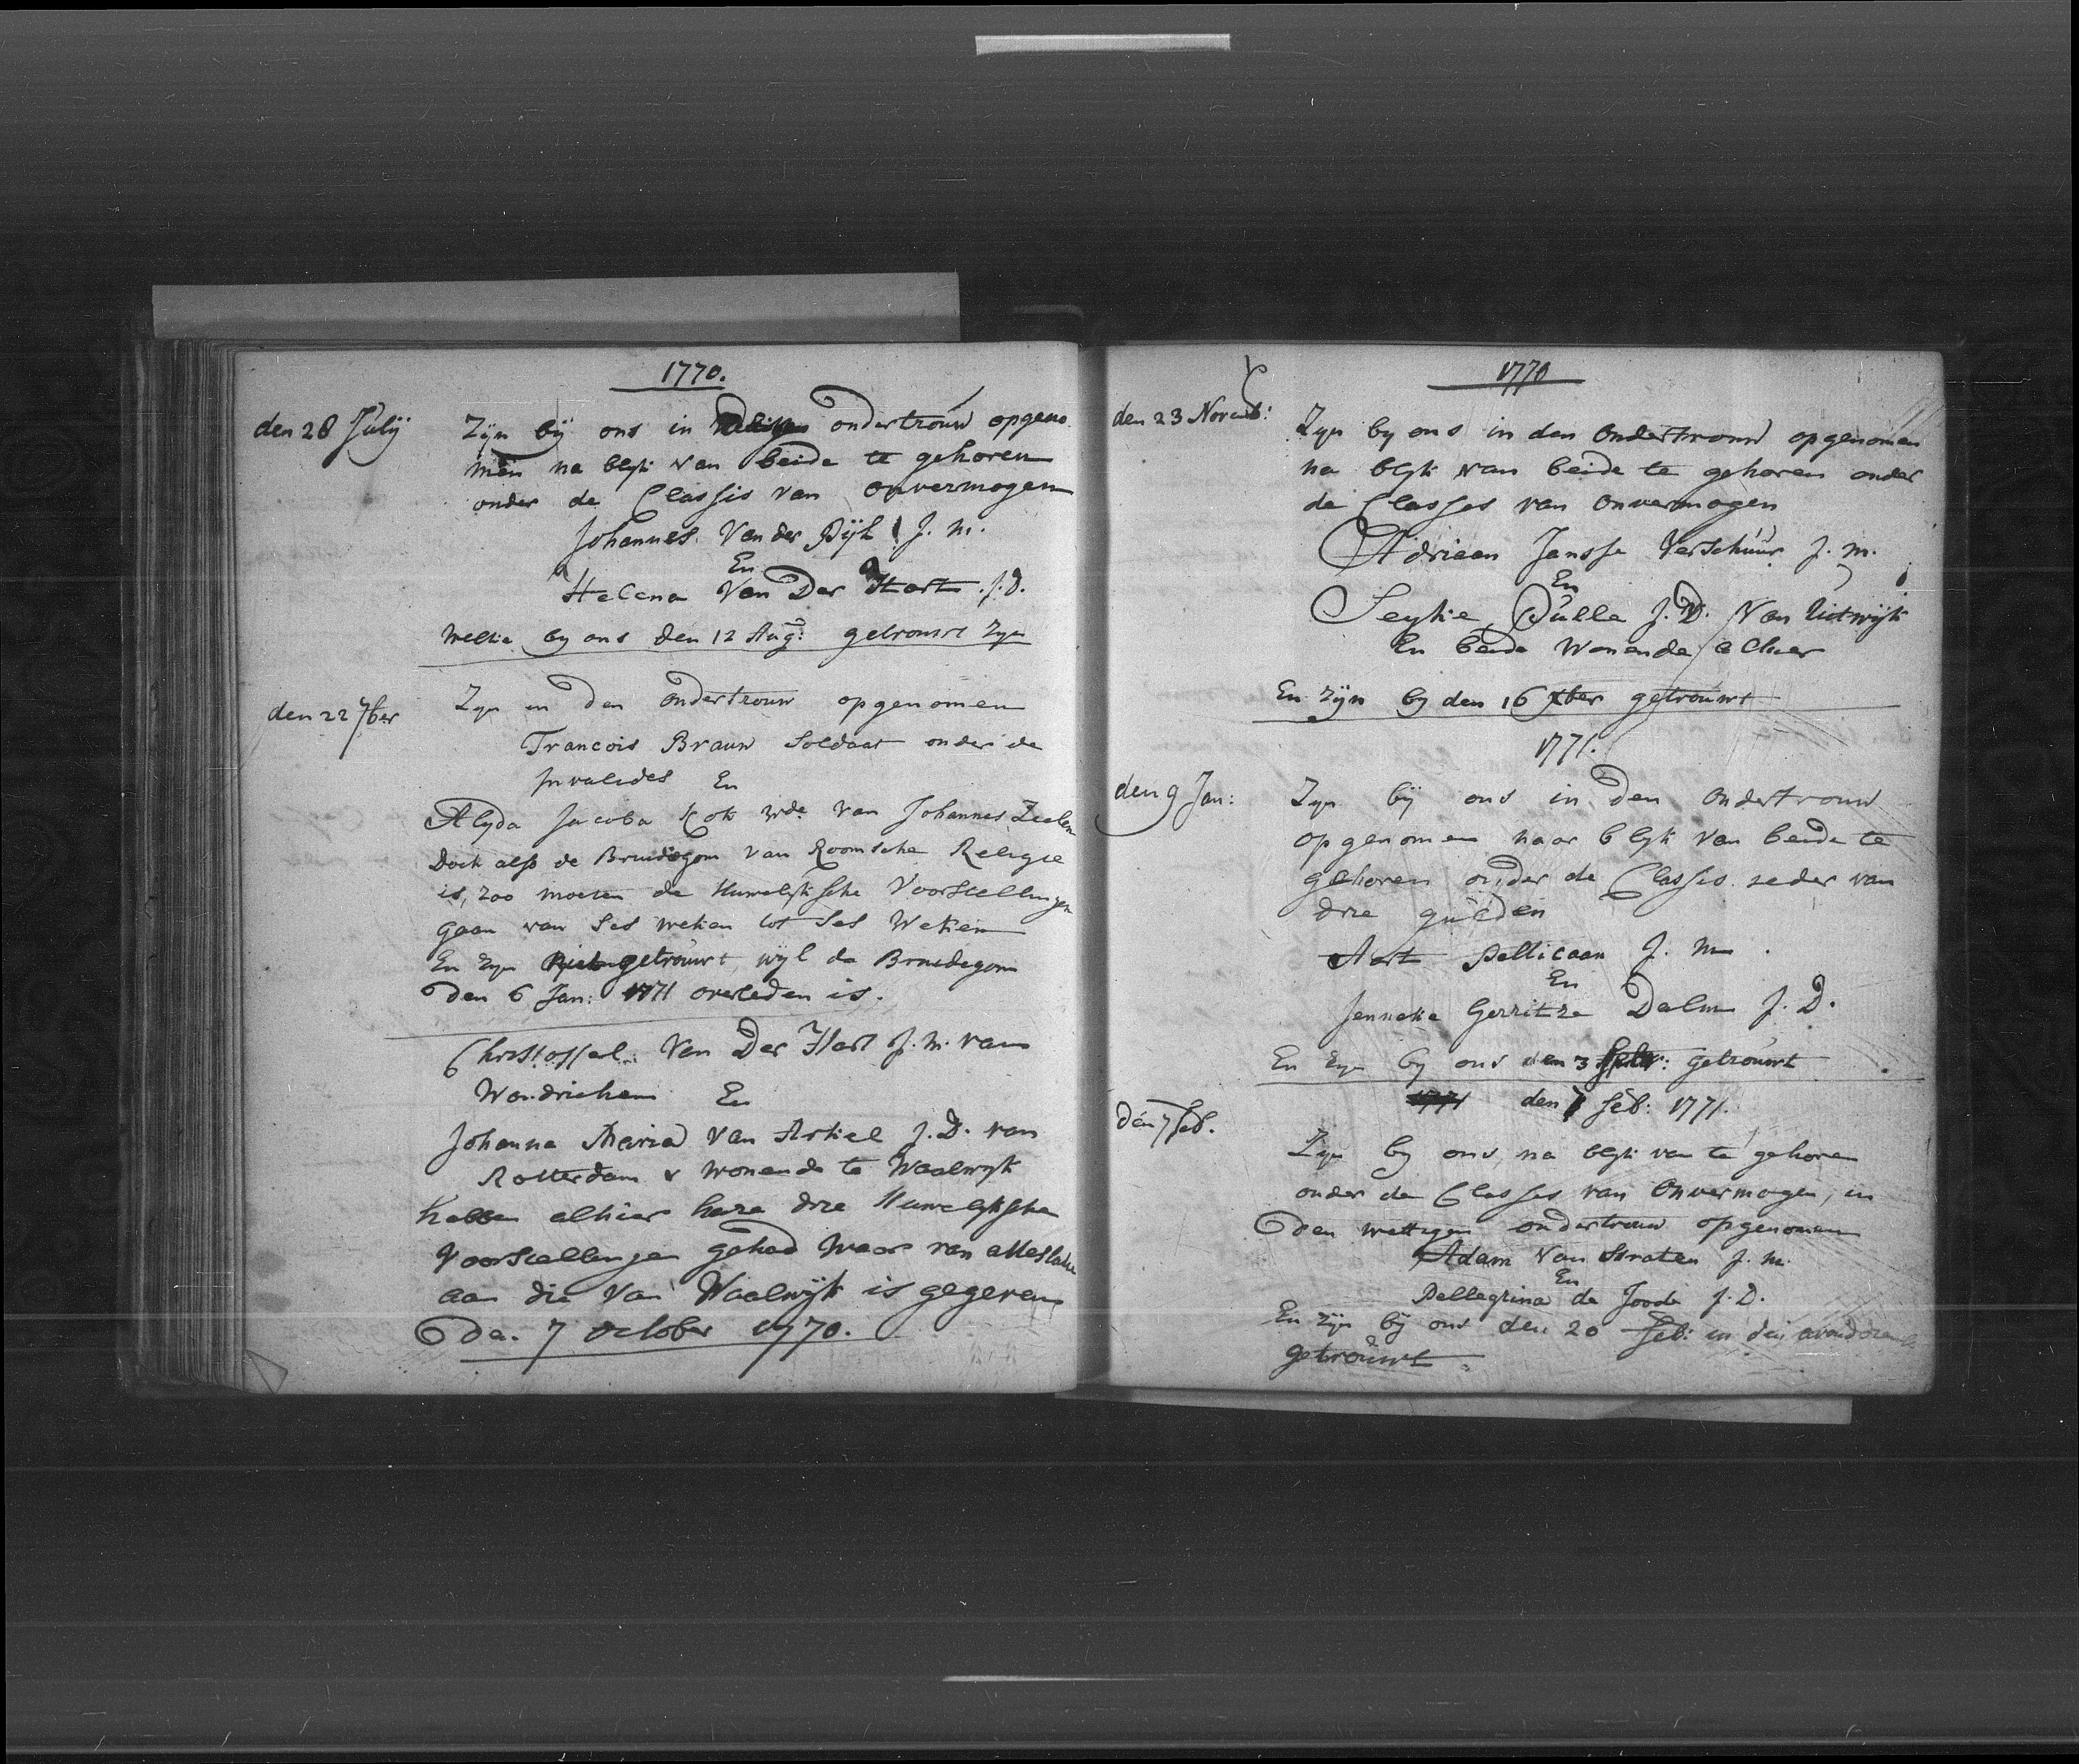 1770.
den 28 Julij
Zijn bij ons in ondertrouw opgeno
men na blijk van beide te gehoren
onder de Classis van onvermogen
Johannes Van der Dijk J. M.
En
Helena Van Der Hart J. D.
Welke by ons den 12 Aug: getrouwt zyn
den 22 7ber
Zyn in den ondertrouw opgenomen
Francois Braun Soldaat onder de
Invalides En
Alyda Jacoba Kok wde van Johannes Zeelen
Doch alss de Bruidegom van Roomsche Religie
is, zoo moeten de Huwelyksche Voorstellingen
gaan van ses weken tot ses Weken
En zyn niet getrouwt, wijl de Bruidegom
den 6 Jan: 1771 overleden is.
Christoffel Van Der Hart J. M. van
Woudrichem En
Johanna Maria Van Arkel J. D. van
Rotterdam & wonende te Waalwyk
hebben alhier hare drie Huwelyksche
Voorstellingen gehad waar van attestatie
aan die Van Waalwijk is gegeven
Da. 7 October 1770.
1770
den 23 Novemb:
Zyn by ons in den ondertrouw opgenomen
na blyk van beide te gehoren onder
de Classes van onvermogen
Adriaan Jansse Verschuur J. M.
En
Seykie Dulle J. D. Van Uitwijk
En beide Wonende alhier
En zijn by den 16 Xber getrouwt
1771.
den 9 Jan:
Zyn bij ons in den ondertrouw
opgenomen naar blyk van beide te
gehoren onder de Classis ieder van
drie gulden
Aart Pellicaan J. M.
En
Jenneke Gerritze Dalm J. D.
En zyn by ons den 3 getrouwt
1771 den 7 feb: 1771.
den 7 feb.
Zyn by ons, na blyk van te gehoren
onder de Classes van Onvermogen, in
den wettigen ondertrouw opgenomen
Adam Van Straten J. M.
En
Pellegrina de Joode J. D.
En zyn bij ons den 20 feb: in den
getrouwt